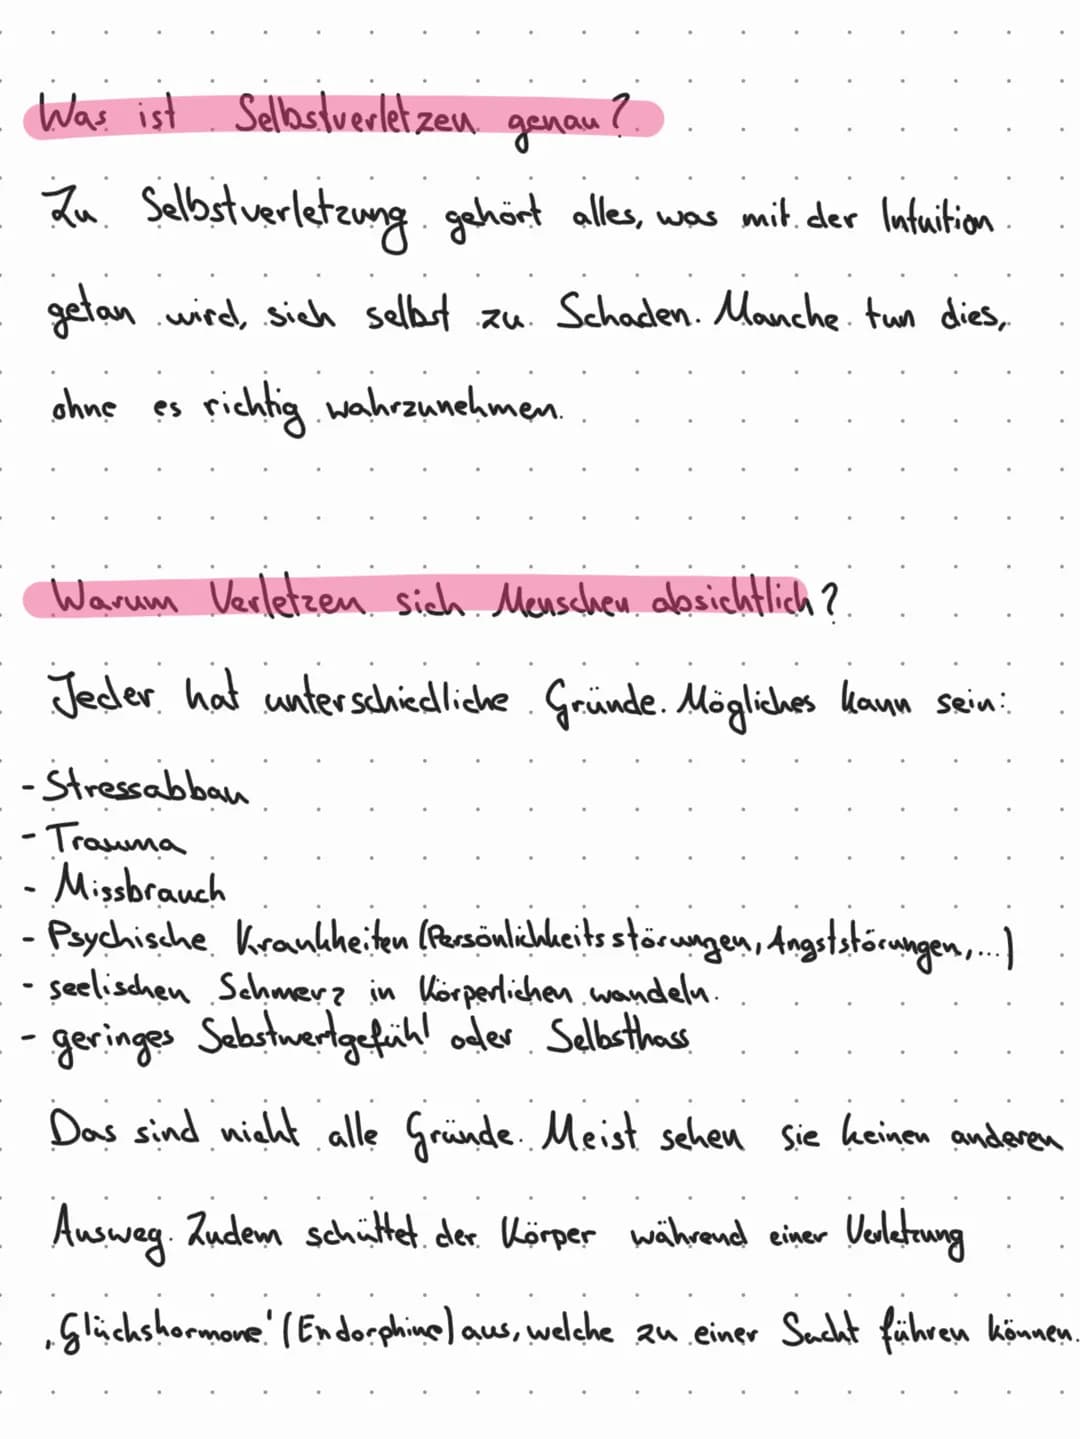 Was ist Selbstverletzen genau?
Zu Selbstverletzung gehört alles, was mit der Intuition
getan wird, sich selbst zu Schaden. Manche tun dies,
ohne es richtig wahrzunehmen.
Warum Verletzen sich Menschen absichtlich?
Jeder hat unterschiedliche Gründe. Mögliches kann sein:
- Stressabbau
- Trauma
- Missbrauch
- Psychische Krankheiten (Persönlichkeitsstörungen, Angststörungen,...)
- seelischen Schmerz in Körperlichen wandeln.
- geringes Sebstwertgefühl oder Selbsthass
Das sind nicht alle Gründe. Meist sehen sie keinen anderen
Ausweg. Zudem schüttet der Körper während einer Verletzung
,Glückshormone' (Endorphine) aus, welche zu einer Sucht führen können.